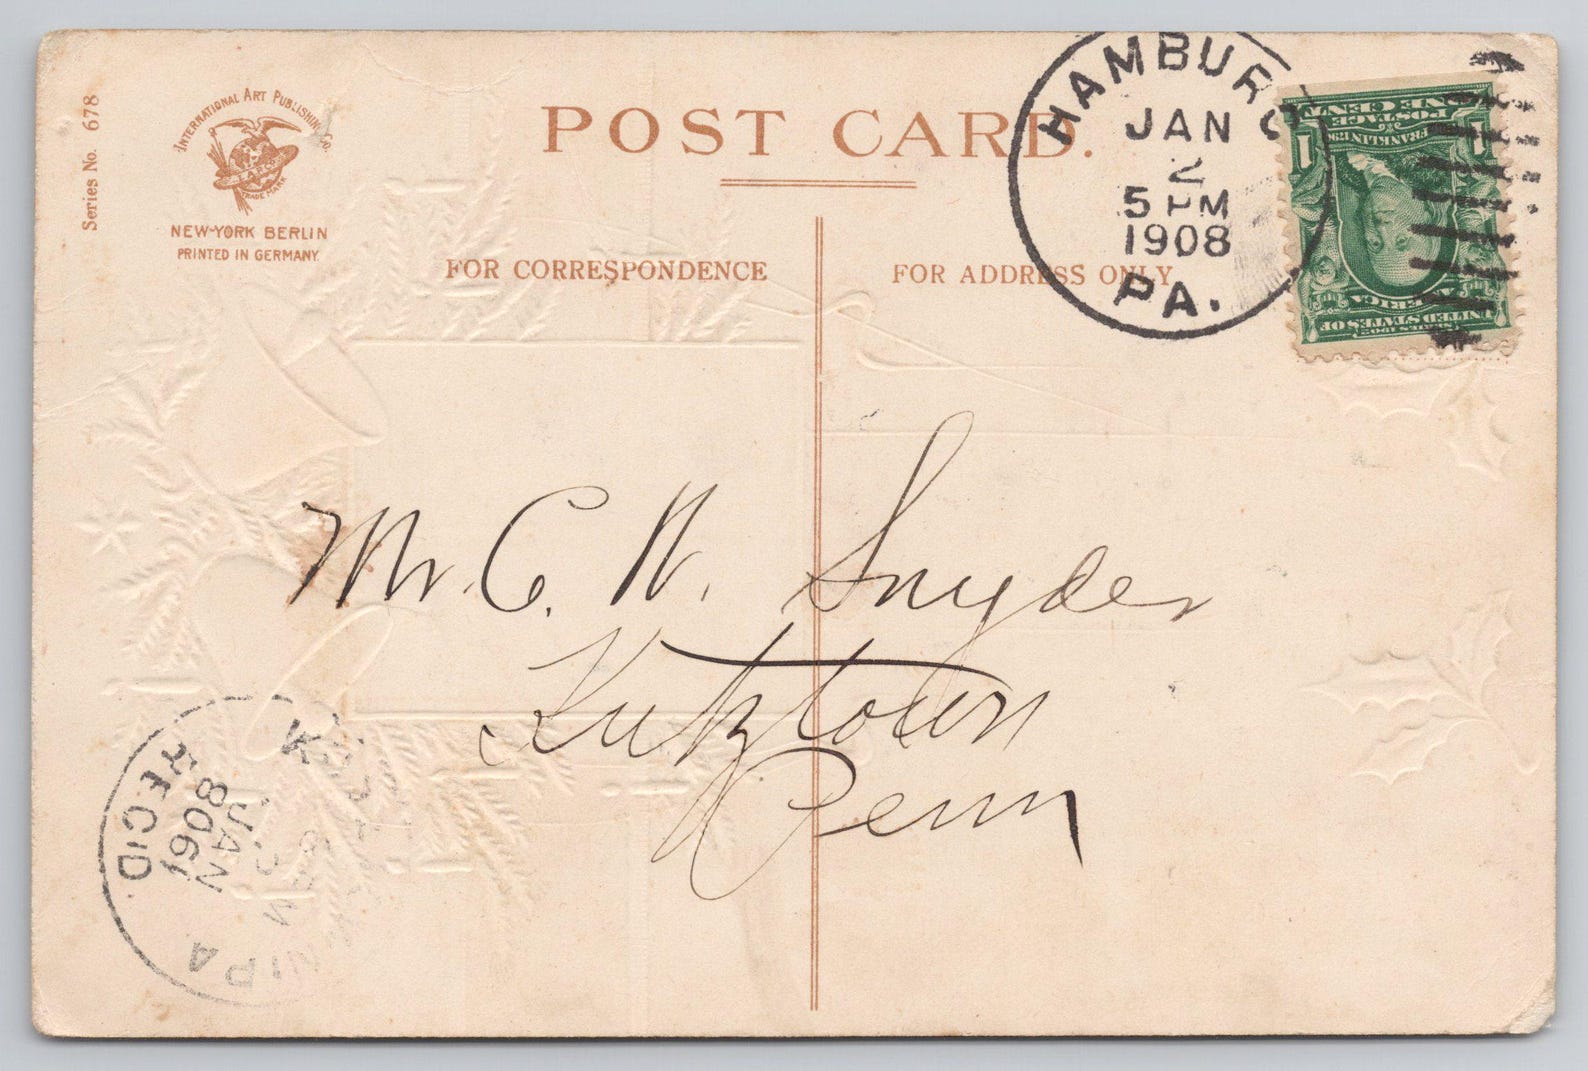 Series No. 678
INTERNATIONAL ART PUBLISHING CO.
TRADE MARK
NEW-YORK BERLIN
PRINTED IN GERMANY
POST CARD.
FOR CORRESPONDENCE
FOR ADDRESS ONLY
HAMBURG
JAN
2
5 PM
1908
PA.
ONE CENT
POSTAGE
FRANKLIN
1 1
AMERICA
UNITED STATES OF
SERIES 1902
Mr. C. W. Snyder
Kutztown
Penn
PA
JAN
1908
REC'D.